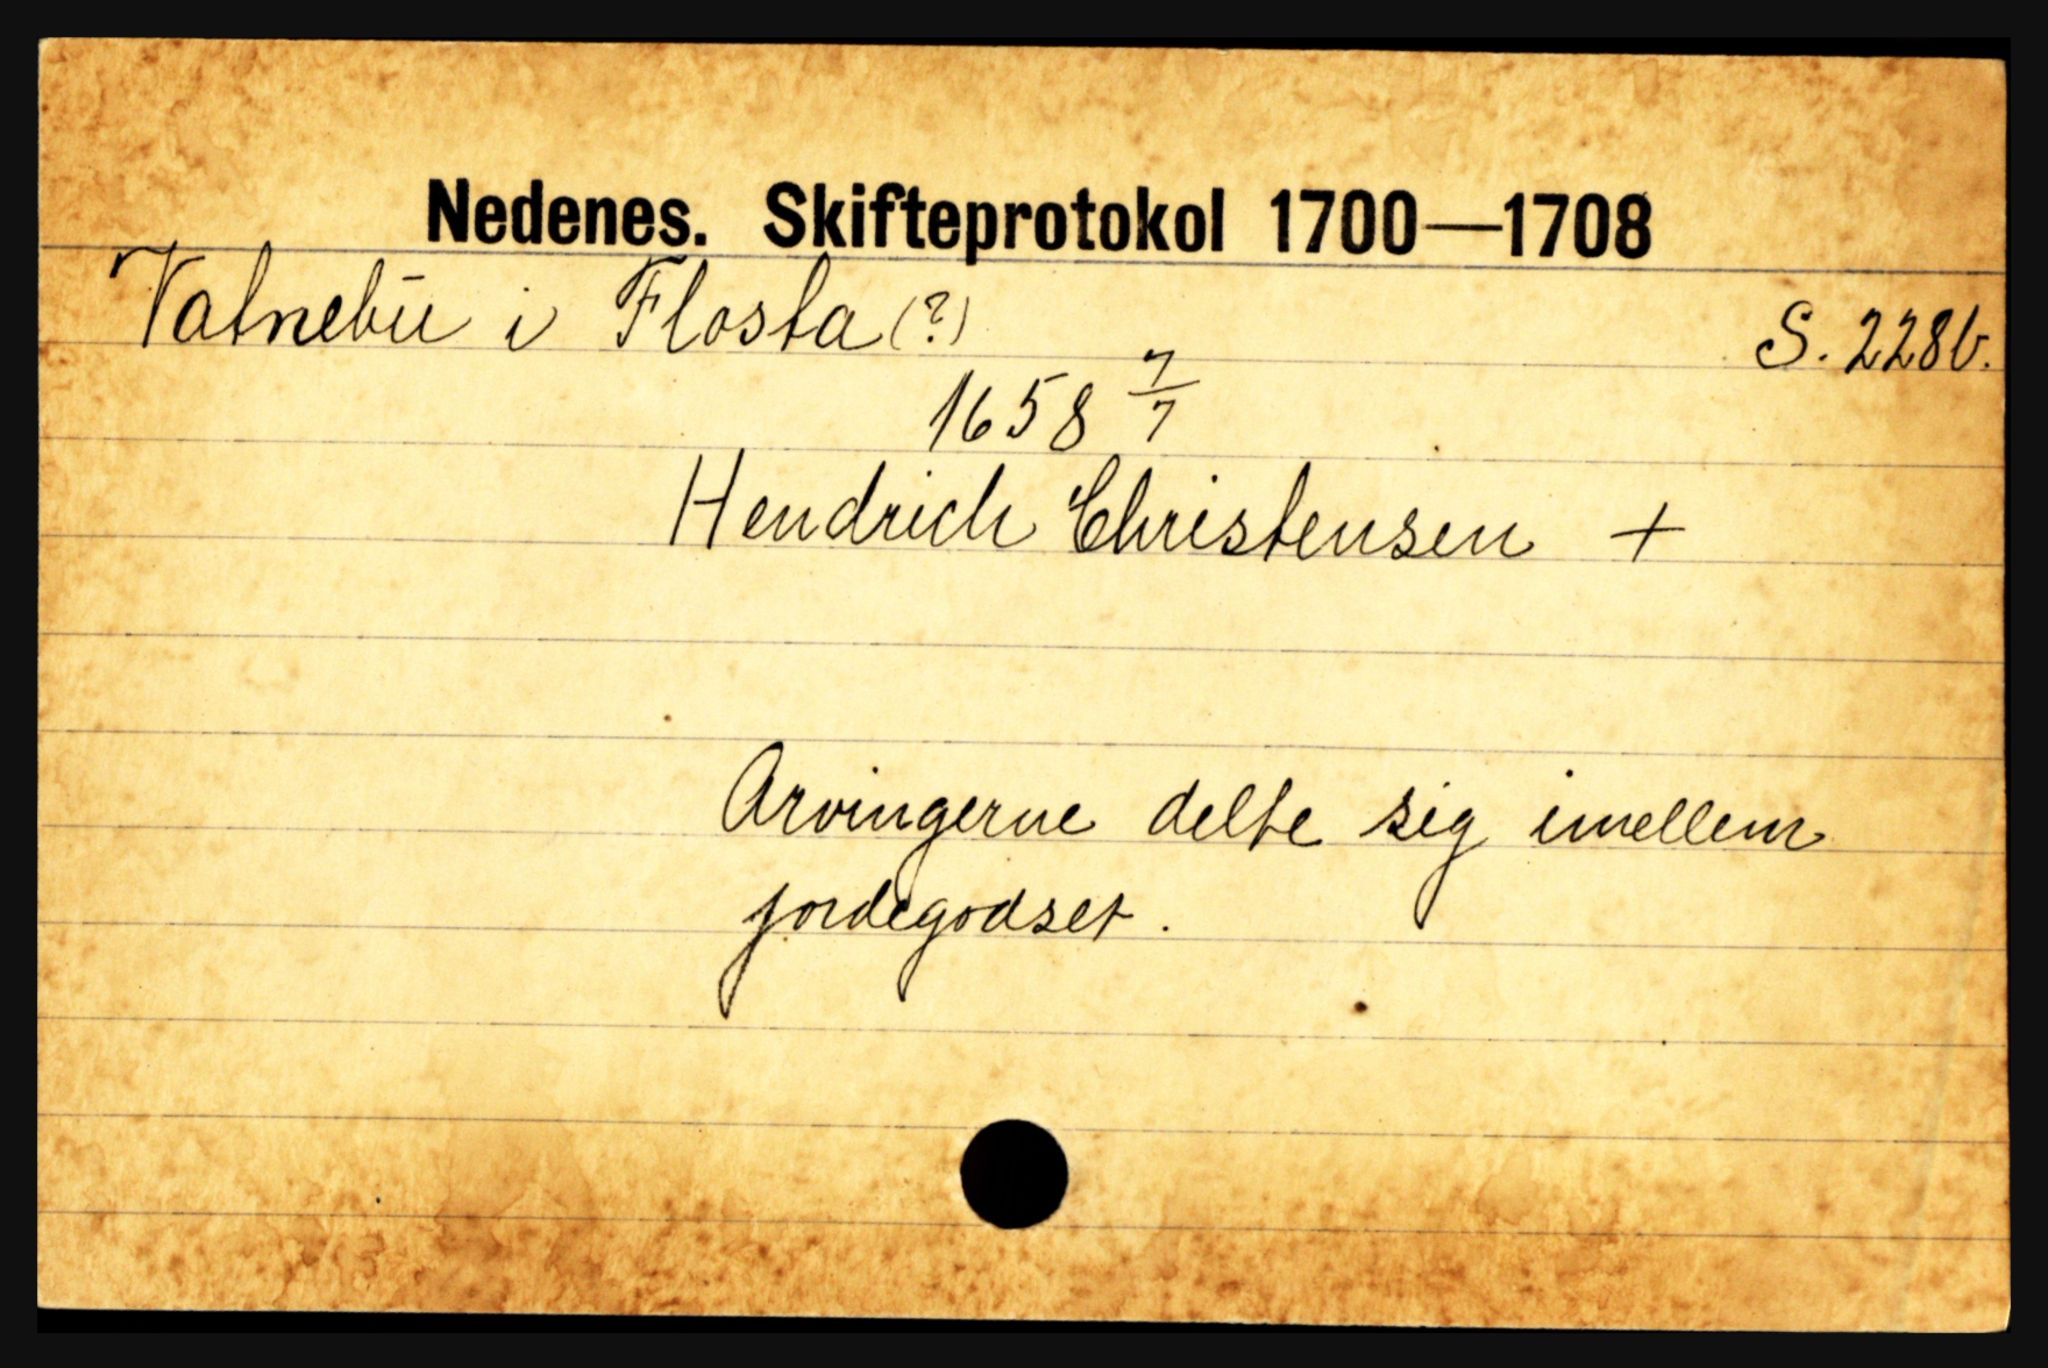 Nedenes. Skifteprotokol 1700—1708
Vatnebu i Flosta (?)
S. 228b.
1658 7/7
Hendrich Christensen +
Arvingerne delte sig imellem
jordegodset.